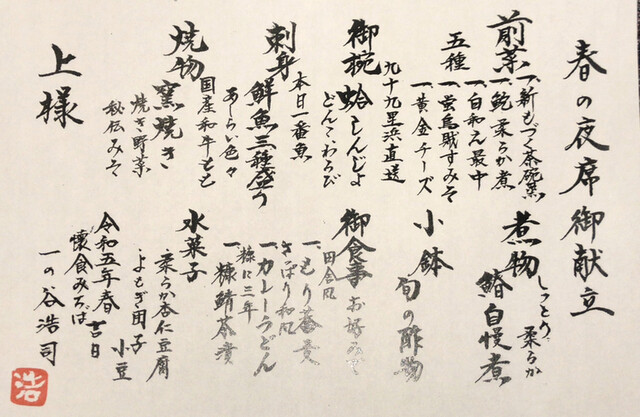 春の夜席御献立
前菜
五種
一、新もづく茶碗蒸
一、鮑柔らか煮
一、白和え最中
一、蛍烏賊すみそ
一、黄金チーズ
御椀
蛤しんじょ
九十九里浜直送
どんこわらび
刺身
鮮魚三種盛り
本日一番魚
あしらい色々
焼物
窯焼き
国産和牛もも
焼き野菜
秘伝みそ
上様
煮物
しっとり、柔らか
鰆自慢煮
小鉢
旬の酢物
御食事
お好みで
一、もり蕎麦
田舎風
さっぱり和風
一、カレーうどん
糠に三年
一、糠鯖茶漬
水菓子
柔らか杏仁豆腐
よもぎ団子
小豆
令和五年春吉日
懐食みちば
一の谷浩司
浩